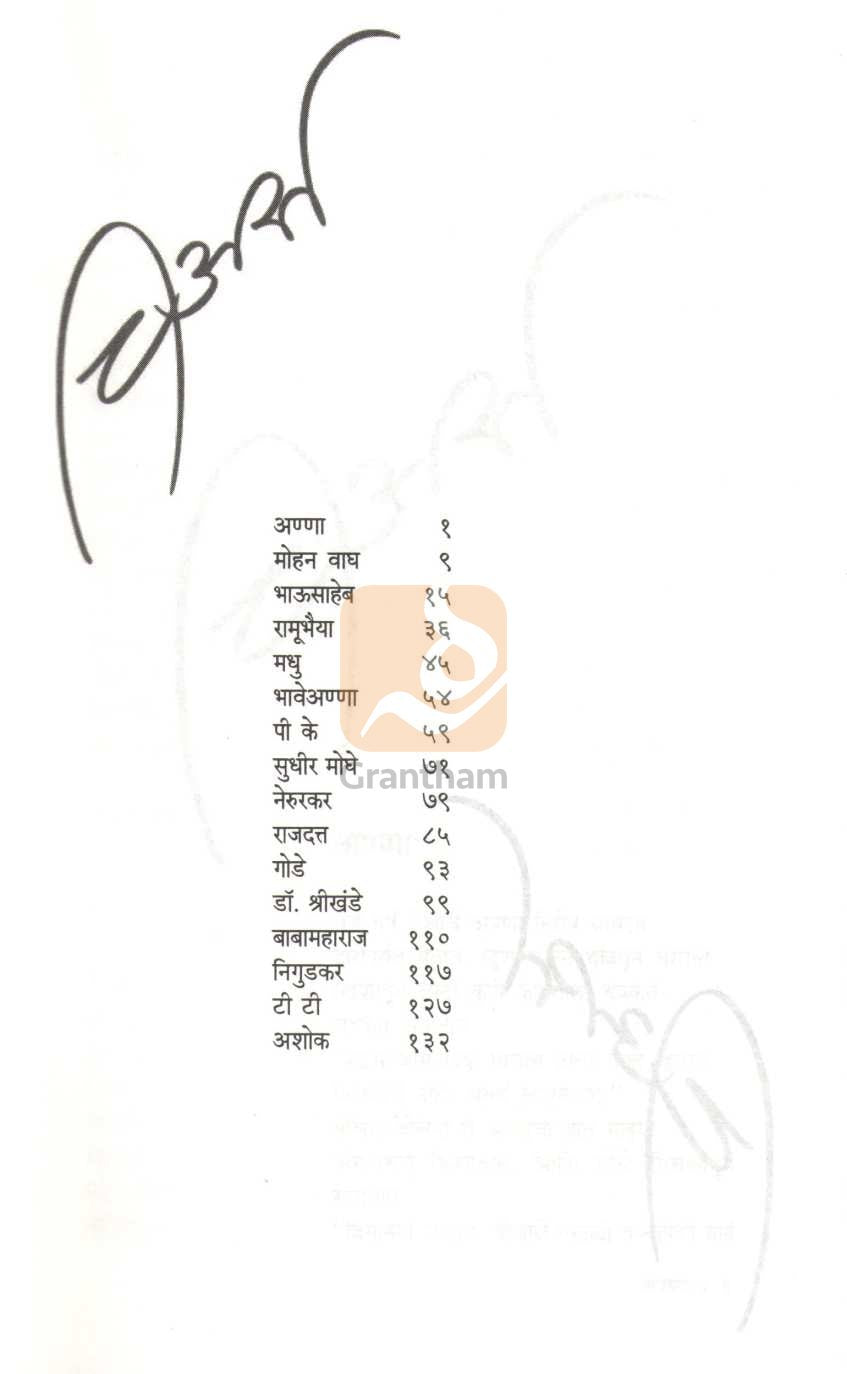 अण्णा १
मोहन वाघ ९
भाऊसाहेब १५
रामूभैया ३६
मधु ४५
भावेअण्णा ५४
पी के ५९
सुधीर मोघे ७१
Grantham
नेरुरकर ७९
राजदत्त ८५
गोडे ९३
डॉ. श्रीखंडे ९९
बाबामहाराज ११०
निगुडकर ११७
टी टी १२७
अशोक १३२